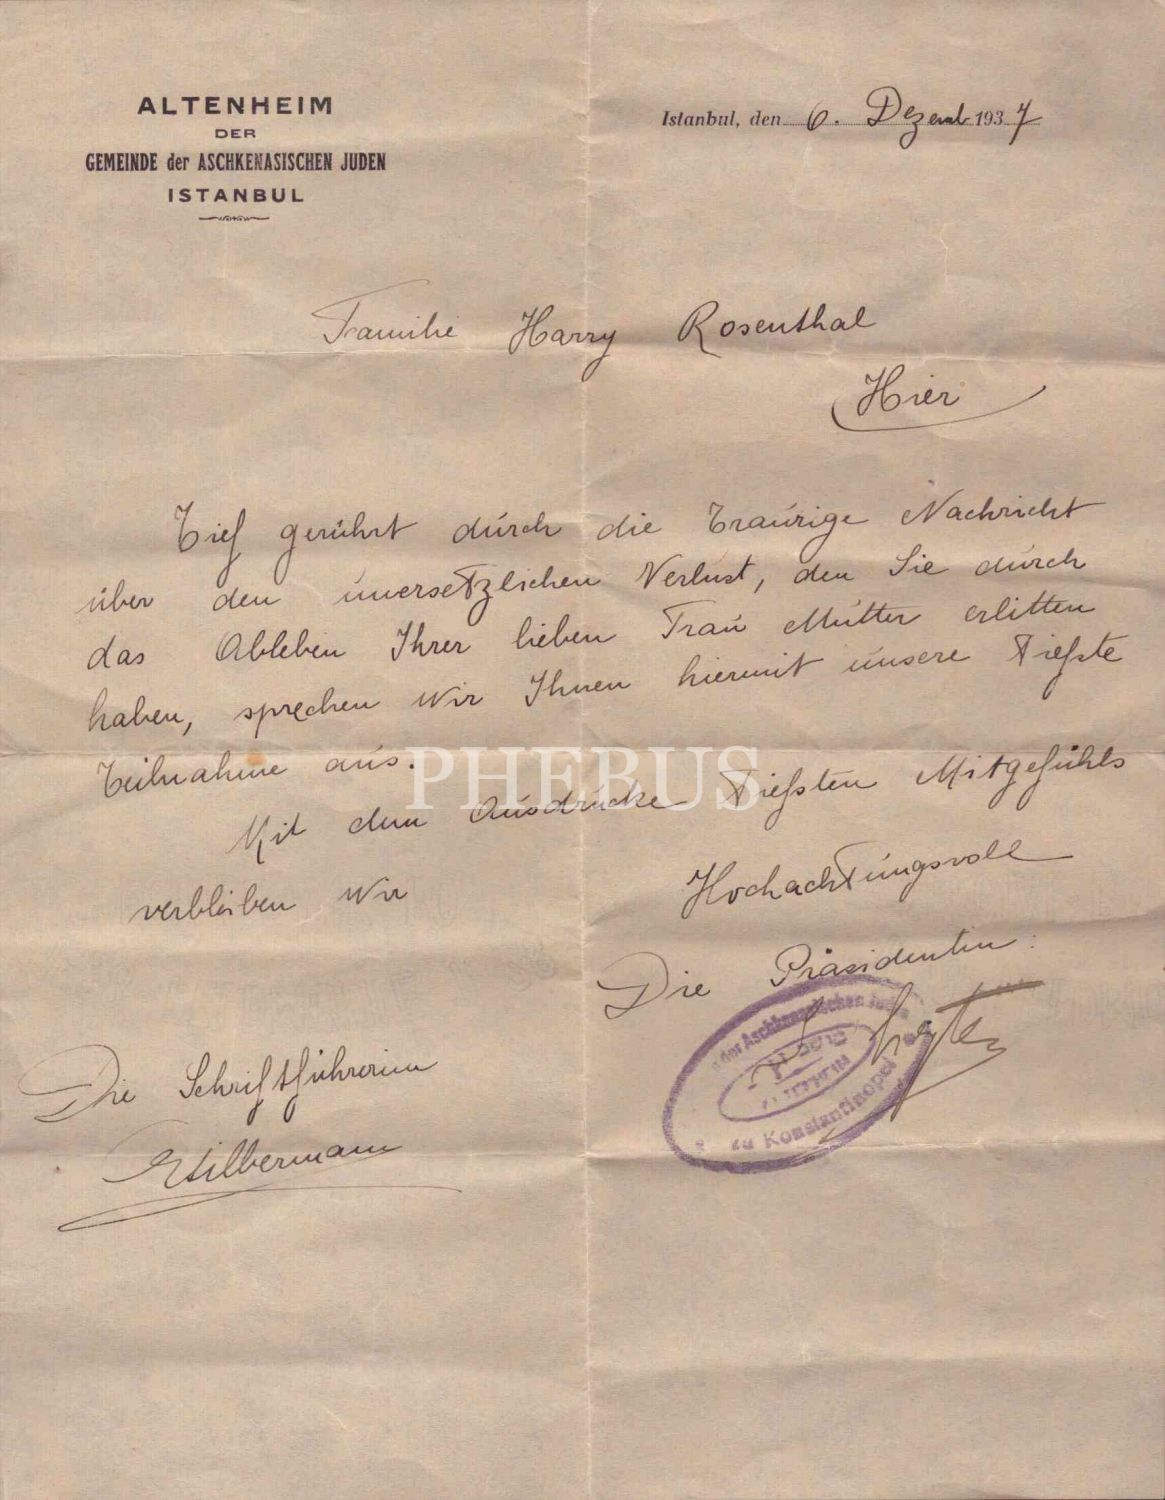 ALTENHEIM
DER
GEMEINDE der ASCHKENASISCHEN JUDEN
ISTANBUL
Istanbul, den 6. Dezemb 1937
Familie Harry Rosenthal
Hier
Tief gerührt durch die traurige Nachricht
über den unersetzlichen Verlust, den Sie durch
das Ableben Ihrer lieben Frau Mutter erlitten
haben, sprechen wir Ihnen hiermit unsere tiefste
Teilnahme aus.
PHEBUS
Mit dem Ausdrucke tiefsten Mitgefühls
verbleiben wir
Hochachtungsvoll
Die Präsidentin:
der Aschkenasischen Juden
ALTENHEIM
zu Konstantinopel
Die Schriftführerin
Silbermann